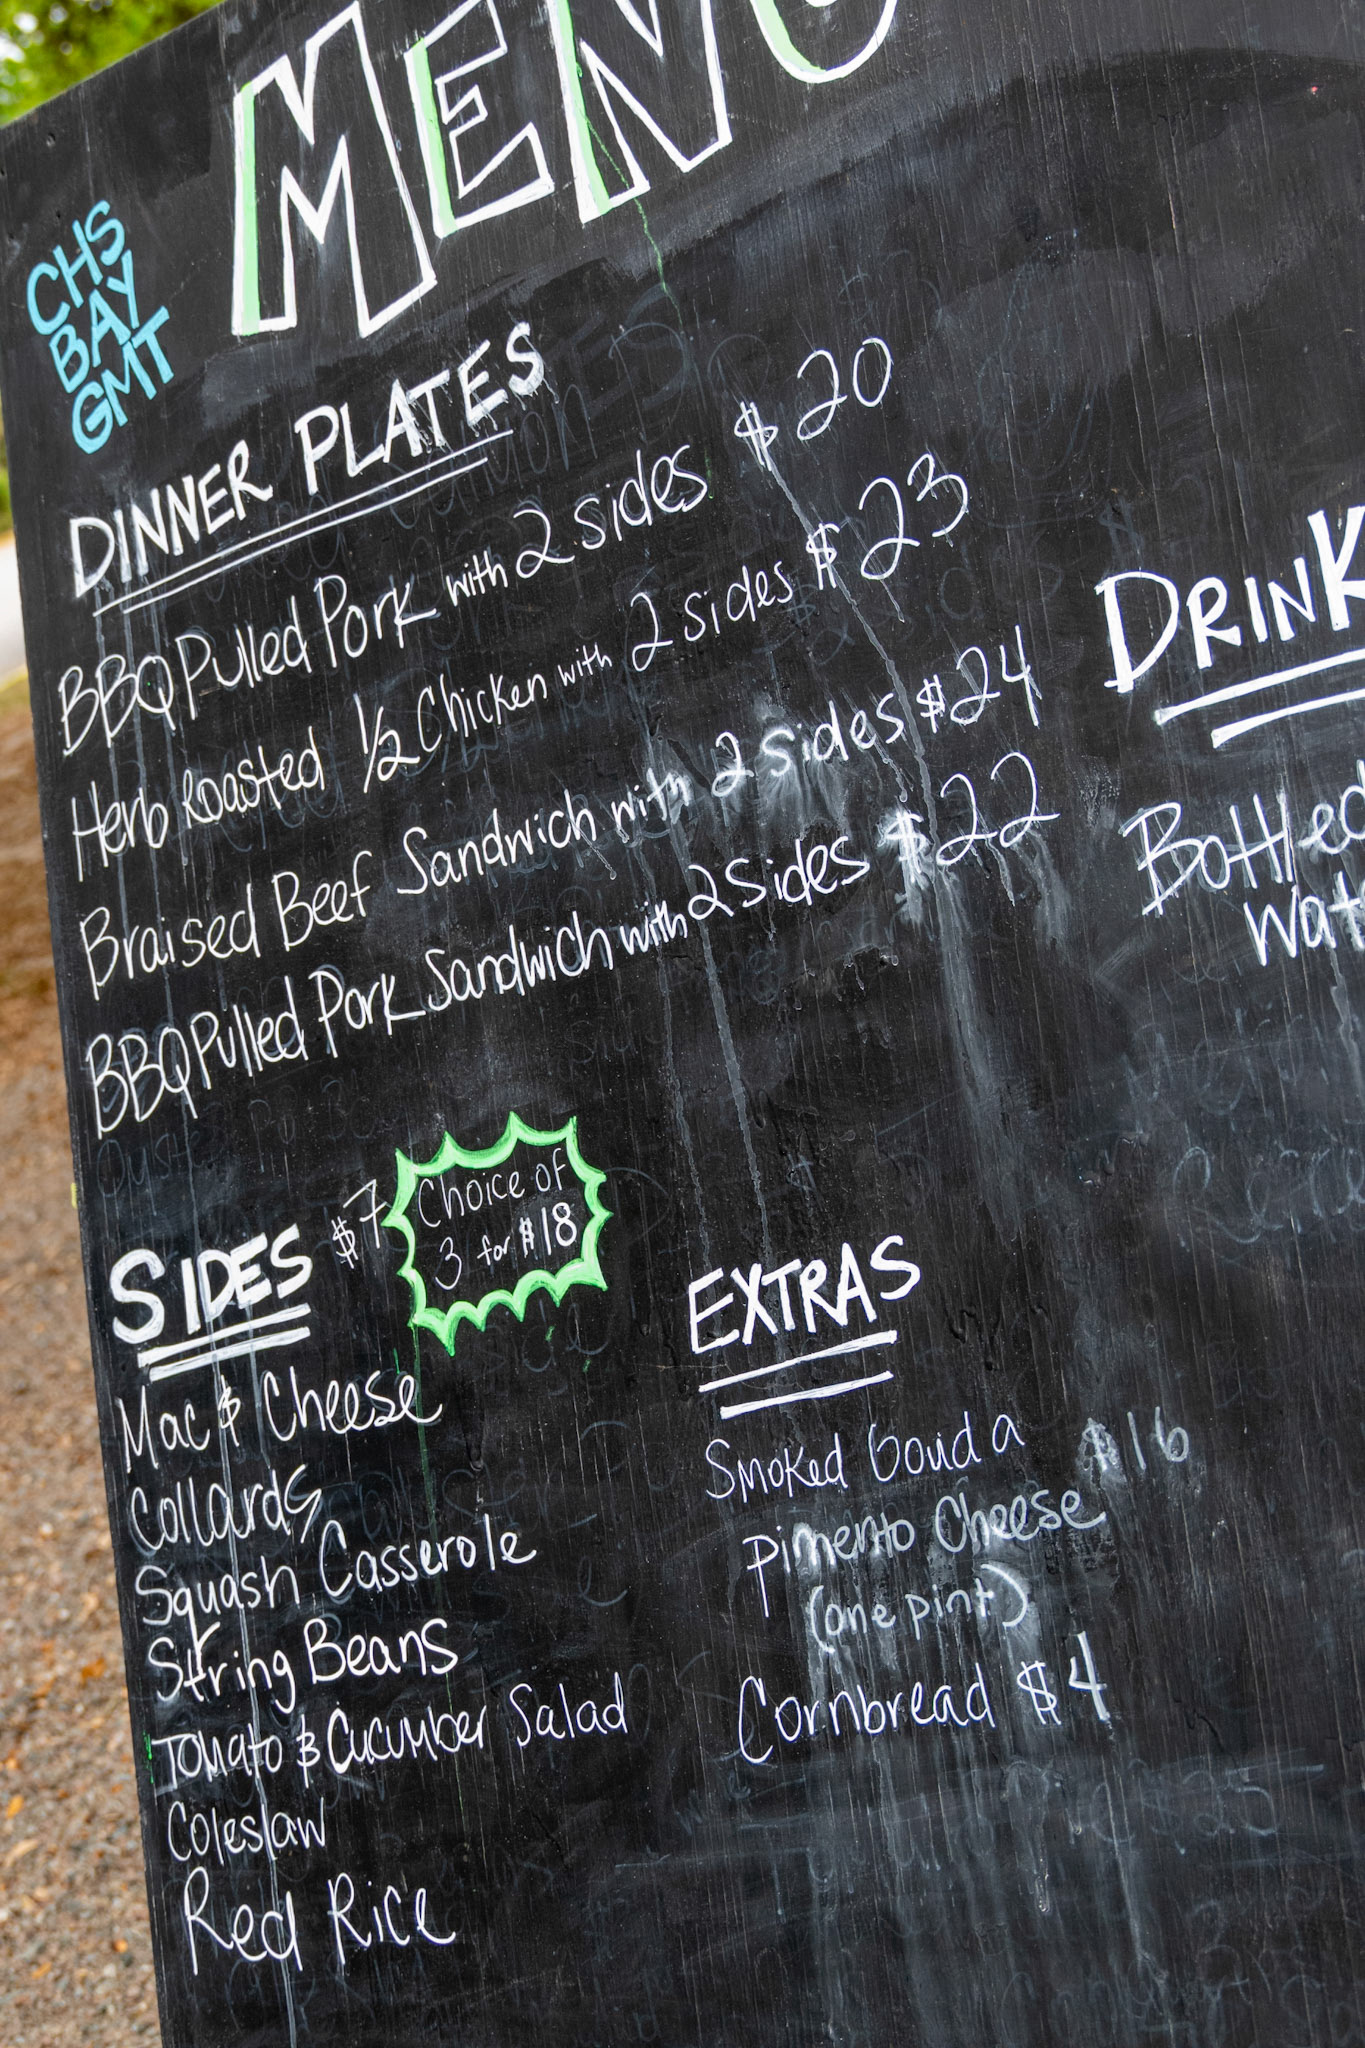 MENU
CHS
BAY
GMT
DINNER PLATES
BBQ Pulled Pork with 2 sides $20
Herb Roasted 1/2 Chicken with 2 sides $23
Braised Beef Sandwich with 2 sides $24
BBQ Pulled Pork Sandwich with 2 sides $22
DRINK
Bottled
Wat
SIDES $7
Choice of
3 for $18
Mac & Cheese
Collards
Squash Casserole
String Beans
Tomato & Cucumber Salad
Coleslaw
Red Rice
EXTRAS
Smoked Gouda $16
Pimento Cheese
(one pint)
Cornbread $4